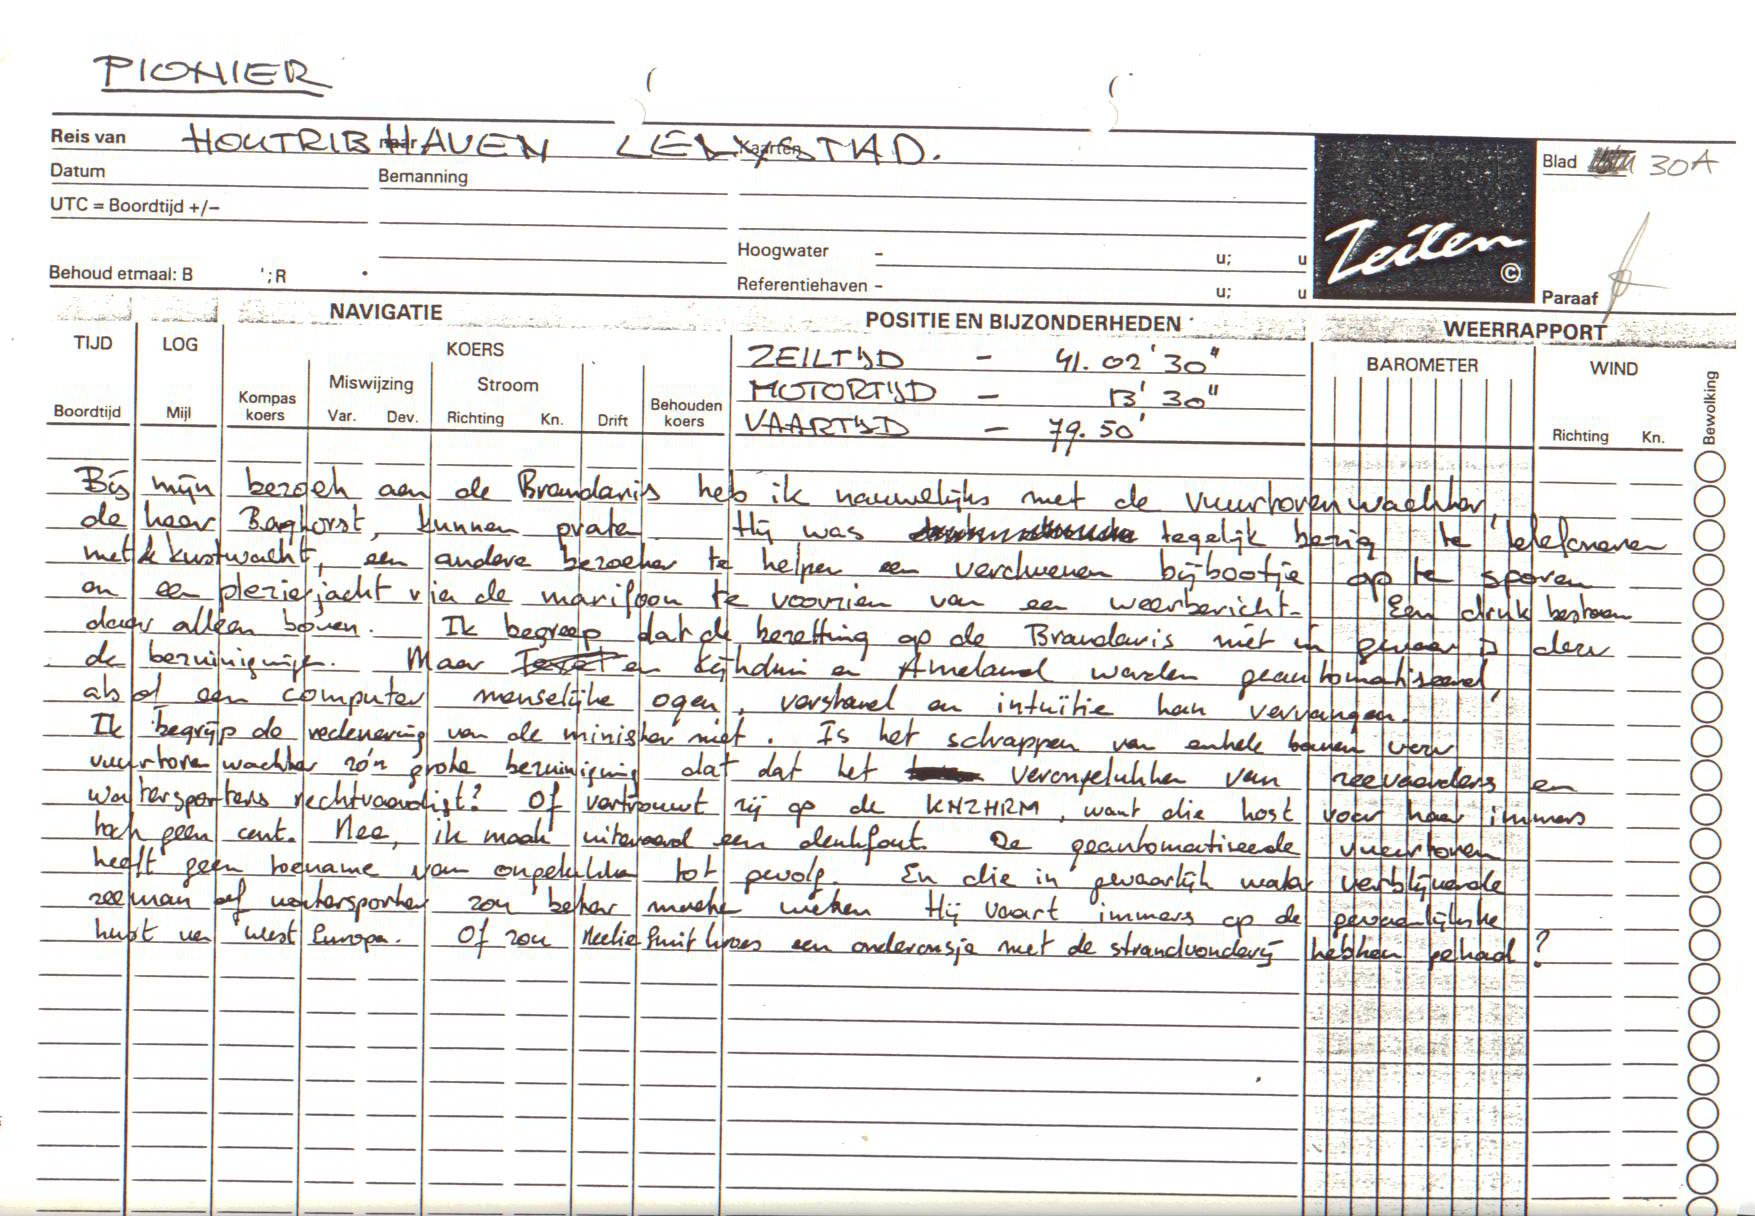 PIONIER
Reis van HOUTRIBHAVEN LELYSTAD.
naar
Kaarten
Blad 30A
Datum
Bemanning
UTC = Boordtijd +/–
Hoogwater – u; u
Behoud etmaal: B ';R
Referentiehaven – u; u
Zeilen ©
Paraaf
NAVIGATIE
POSITIE EN BIJZONDERHEDEN
WEERRAPPORT
TIJD LOG KOERS
ZEILTIJD – 41.02'30"
BAROMETER WIND
Miswijzing Stroom
MOTORTIJD – 13'30"
Boordtijd Mijl Kompas koers Var. Dev. Richting Kn. Drift Behouden koers
VAARTIJD – 79.50'
Richting Kn. Bewolking
Bij mijn bezoek aan de Brandaris heb ik nauwelijks met de vuurtorenwachter,
de heer Baghorst, kunnen praten. Hij was tegelijk bezig te telefoneren
met de kustwacht, een andere bezoeker te helpen een verdwenen bijbootje op te sporen
en een plezierjacht via de marifoon te voorzien van een weerbericht. Een druk bestaan
daar alleen boven. Ik begreep dat de bezetting op de Brandaris niet in gevaar is door
de bezuinigingen. Maar Texel en Kijkduin en Ameland worden geautomatiseerd,
alsof een computer menselijke ogen, verstand en intuïtie kan vervangen.
Ik begrijp de redenering van de minister niet. Is het schrappen van enkele banen van
vuurtorenwachter zo'n grote bezuiniging dat dat het verongelukken van zeevaarders en
watersporters rechtvaardigt? Of vertrouwt zij op de KNZHRM, want die kost voor haar immers
toch geen cent. Nee, ik maak uiteraard een denkfout. De geautomatiseerde vuurtoren
heeft geen toename van ongelukken tot gevolg. En die in gevaarlijk water verblijvende
zeeman of watersporter zou beter moeten weten. Hij vaart immers op de gevaarlijkste
kust van West Europa. Of zou Neelie Smit Kroes een onderonsje met de strandvonderij hebben gehad?